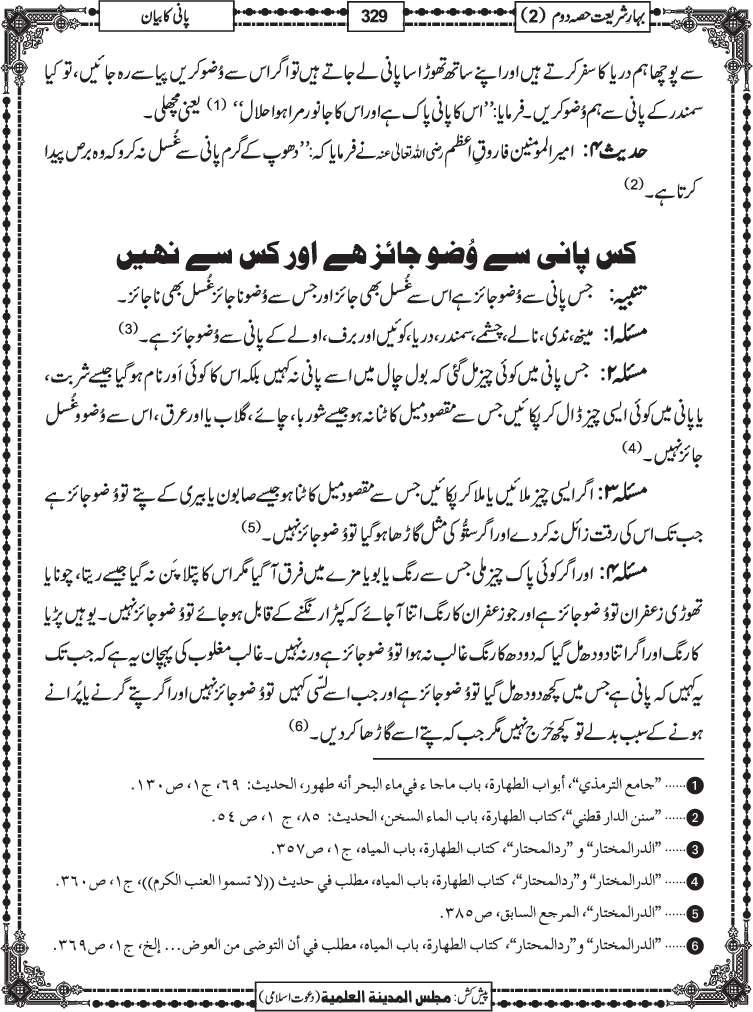 بہارِ شریعت حصہ دوم (2)
329
پانی کا بیان
سے پوچھا ہم دریا کا سفر کرتے ہیں اور اپنے ساتھ تھوڑا سا پانی لے جاتے ہیں تو اگر اس سے وُضو کریں پیاسے رہ جائیں، تو کیا
سمندر کے پانی سے ہم وُضو کریں۔ فرمایا: ’’اس کا پانی پاک ہے اور اس کا جانور مرا ہوا حلال‘‘ (1) یعنی مچھلی۔
حدیث ۴: امیر المومنین فاروقِ اعظم رضی اللہ تعالیٰ عنہ نے فرمایا کہ: ’’دھوپ کے گرم پانی سے غُسل نہ کرو کہ وہ برص پیدا
کرتا ہے۔ (2)
کس پانی سے وُضو جائز ھے اور کس سے نھیں
تنبیہ: جس پانی سے وُضو جائز ہے اس سے غُسل بھی جائز اور جس سے وُضو ناجائز غُسل بھی ناجائز۔
مسئلہ ۱: مینھ، ندی، نالے، چشمے، سمندر، دریا، کوئیں اور برف، اولے کے پانی سے وُضو جائز ہے۔ (3)
مسئلہ ۲: جس پانی میں کوئی چیز مل گئی کہ بول چال میں اسے پانی نہ کہیں بلکہ اس کا کوئی اَور نام ہو گیا جیسے شربت،
یا پانی میں کوئی ایسی چیز ڈال کر پکائیں جس سے مقصود میل کاٹنا نہ ہو جیسے شوربا، چائے، گلاب یا اور عرق، اس سے وُضو و غُسل
جائز نہیں۔ (4)
مسئلہ ۳: اگر ایسی چیز ملائیں یا ملا کر پکائیں جس سے مقصود میل کاٹنا ہو جیسے صابون یا بیری کے پتے تو وُضو جائز ہے
جب تک اس کی رقت زائل نہ کر دے اور اگر ستُّو کی مثل گاڑھا ہو گیا تو وُضو جائز نہیں۔ (5)
مسئلہ ۴: اور اگر کوئی پاک چیز ملی جس سے رنگ یا بو یا مزے میں فرق آ گیا مگر اس کا پتلا پَن نہ گیا جیسے ریتا، چونا یا
تھوڑی زعفران تو وُضو جائز ہے اور جو زعفران کا رنگ اتنا آ جائے کہ کپڑا رنگنے کے قابل ہو جائے تو وُضو جائز نہیں۔ یوہیں پڑیا
کا رنگ اور اگر اتنا دودھ مل گیا کہ دودھ کا رنگ غالب نہ ہوا تو وُضو جائز ہے ورنہ نہیں۔ غالب مغلوب کی پہچان یہ ہے کہ جب تک
یہ کہیں کہ پانی ہے جس میں کچھ دودھ مل گیا تو وُضو جائز ہے اور جب اسے لسّی کہیں تو وُضو جائز نہیں اور اگر پتے گرنے یا پُرانے
ہونے کے سبب بدلے تو کچھ حَرَج نہیں مگر جب کہ پتے اسے گاڑھا کر دیں۔ (6)
1...... "جامع الترمذي"، أبواب الطهارة، باب ماجاء في ماء البحر أنه طهور، الحديث: ٦٩، ج١، ص١٣٠.
2...... "سنن الدار قطني"، كتاب الطهارة، باب الماء السخن، الحديث: ٨٥، ج ١، ص ٥٤.
3...... "الدرالمختار" و "ردالمحتار"، كتاب الطهارة، باب المياه، ج١، ص٣٥٧.
4...... "الدرالمختار" و"ردالمحتار"، كتاب الطهارة، باب المياه، مطلب في حديث ((لا تسموا العنب الكرم))، ج١، ص٣٦٠.
5...... "الدرالمختار"، المرجع السابق، ص٣٨٥.
6...... "الدرالمختار" و"ردالمحتار"، كتاب الطهارة، باب المياه، مطلب في أن التوضى من العوض... إلخ، ج١، ص٣٦٩.
پیش کش: مجلس المدينة العلمية (دعوت اسلامی)